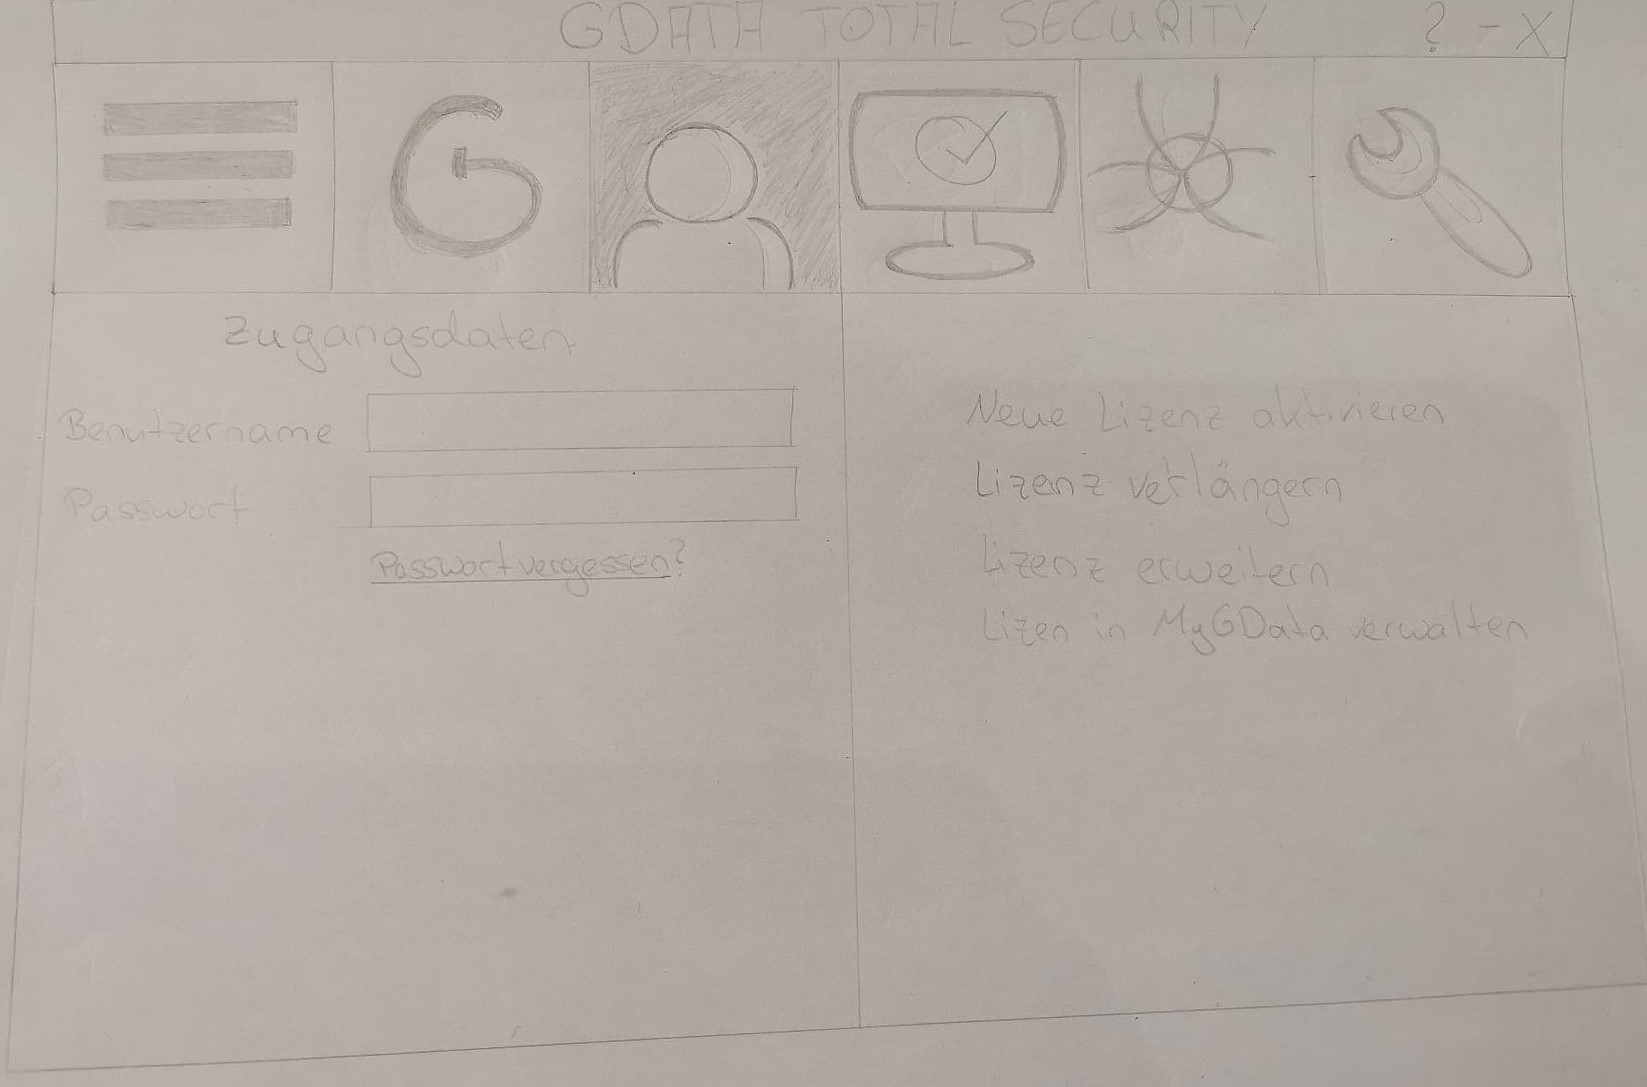 GDATA TOTAL SECURITY ? - X
G
Zugangsdaten
Benutzername
Passwort
Passwort vergessen?
Neue Lizenz aktivieren
Lizenz verlängern
Lizenz erweitern
Lizen in MyGData verwalten